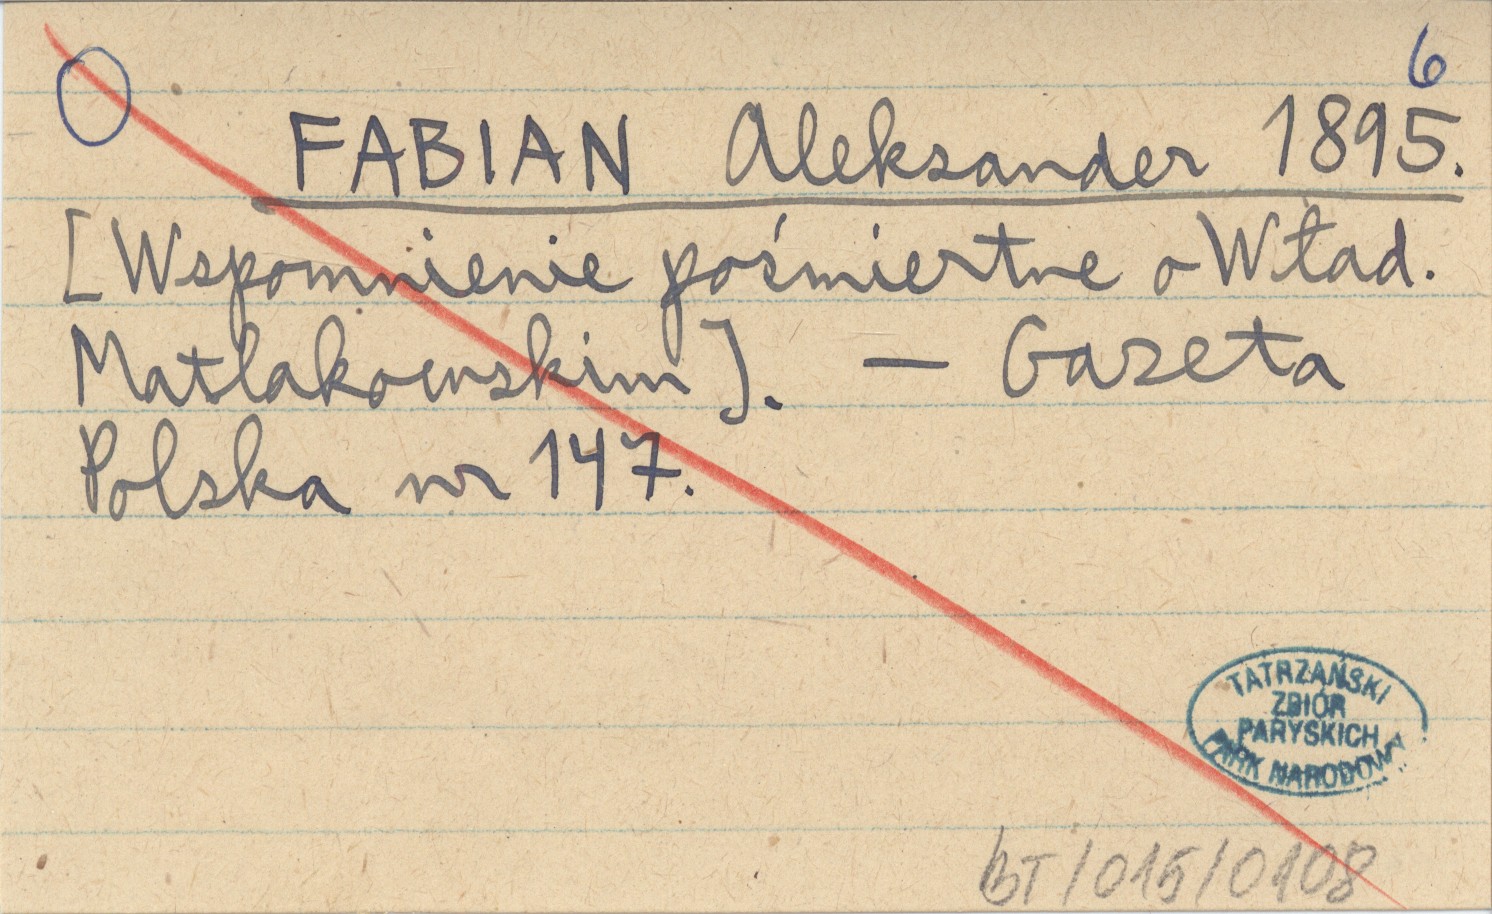 6
FABIAN Aleksander 1895.
[Wspomnienie pośmiertne o Wład.
Matlakowskim]. — Gazeta
Polska nr 147.
TATRZAŃSKI
ZBIÓR
PARYSKICH
PARK NARODOWY
BT/015/0108